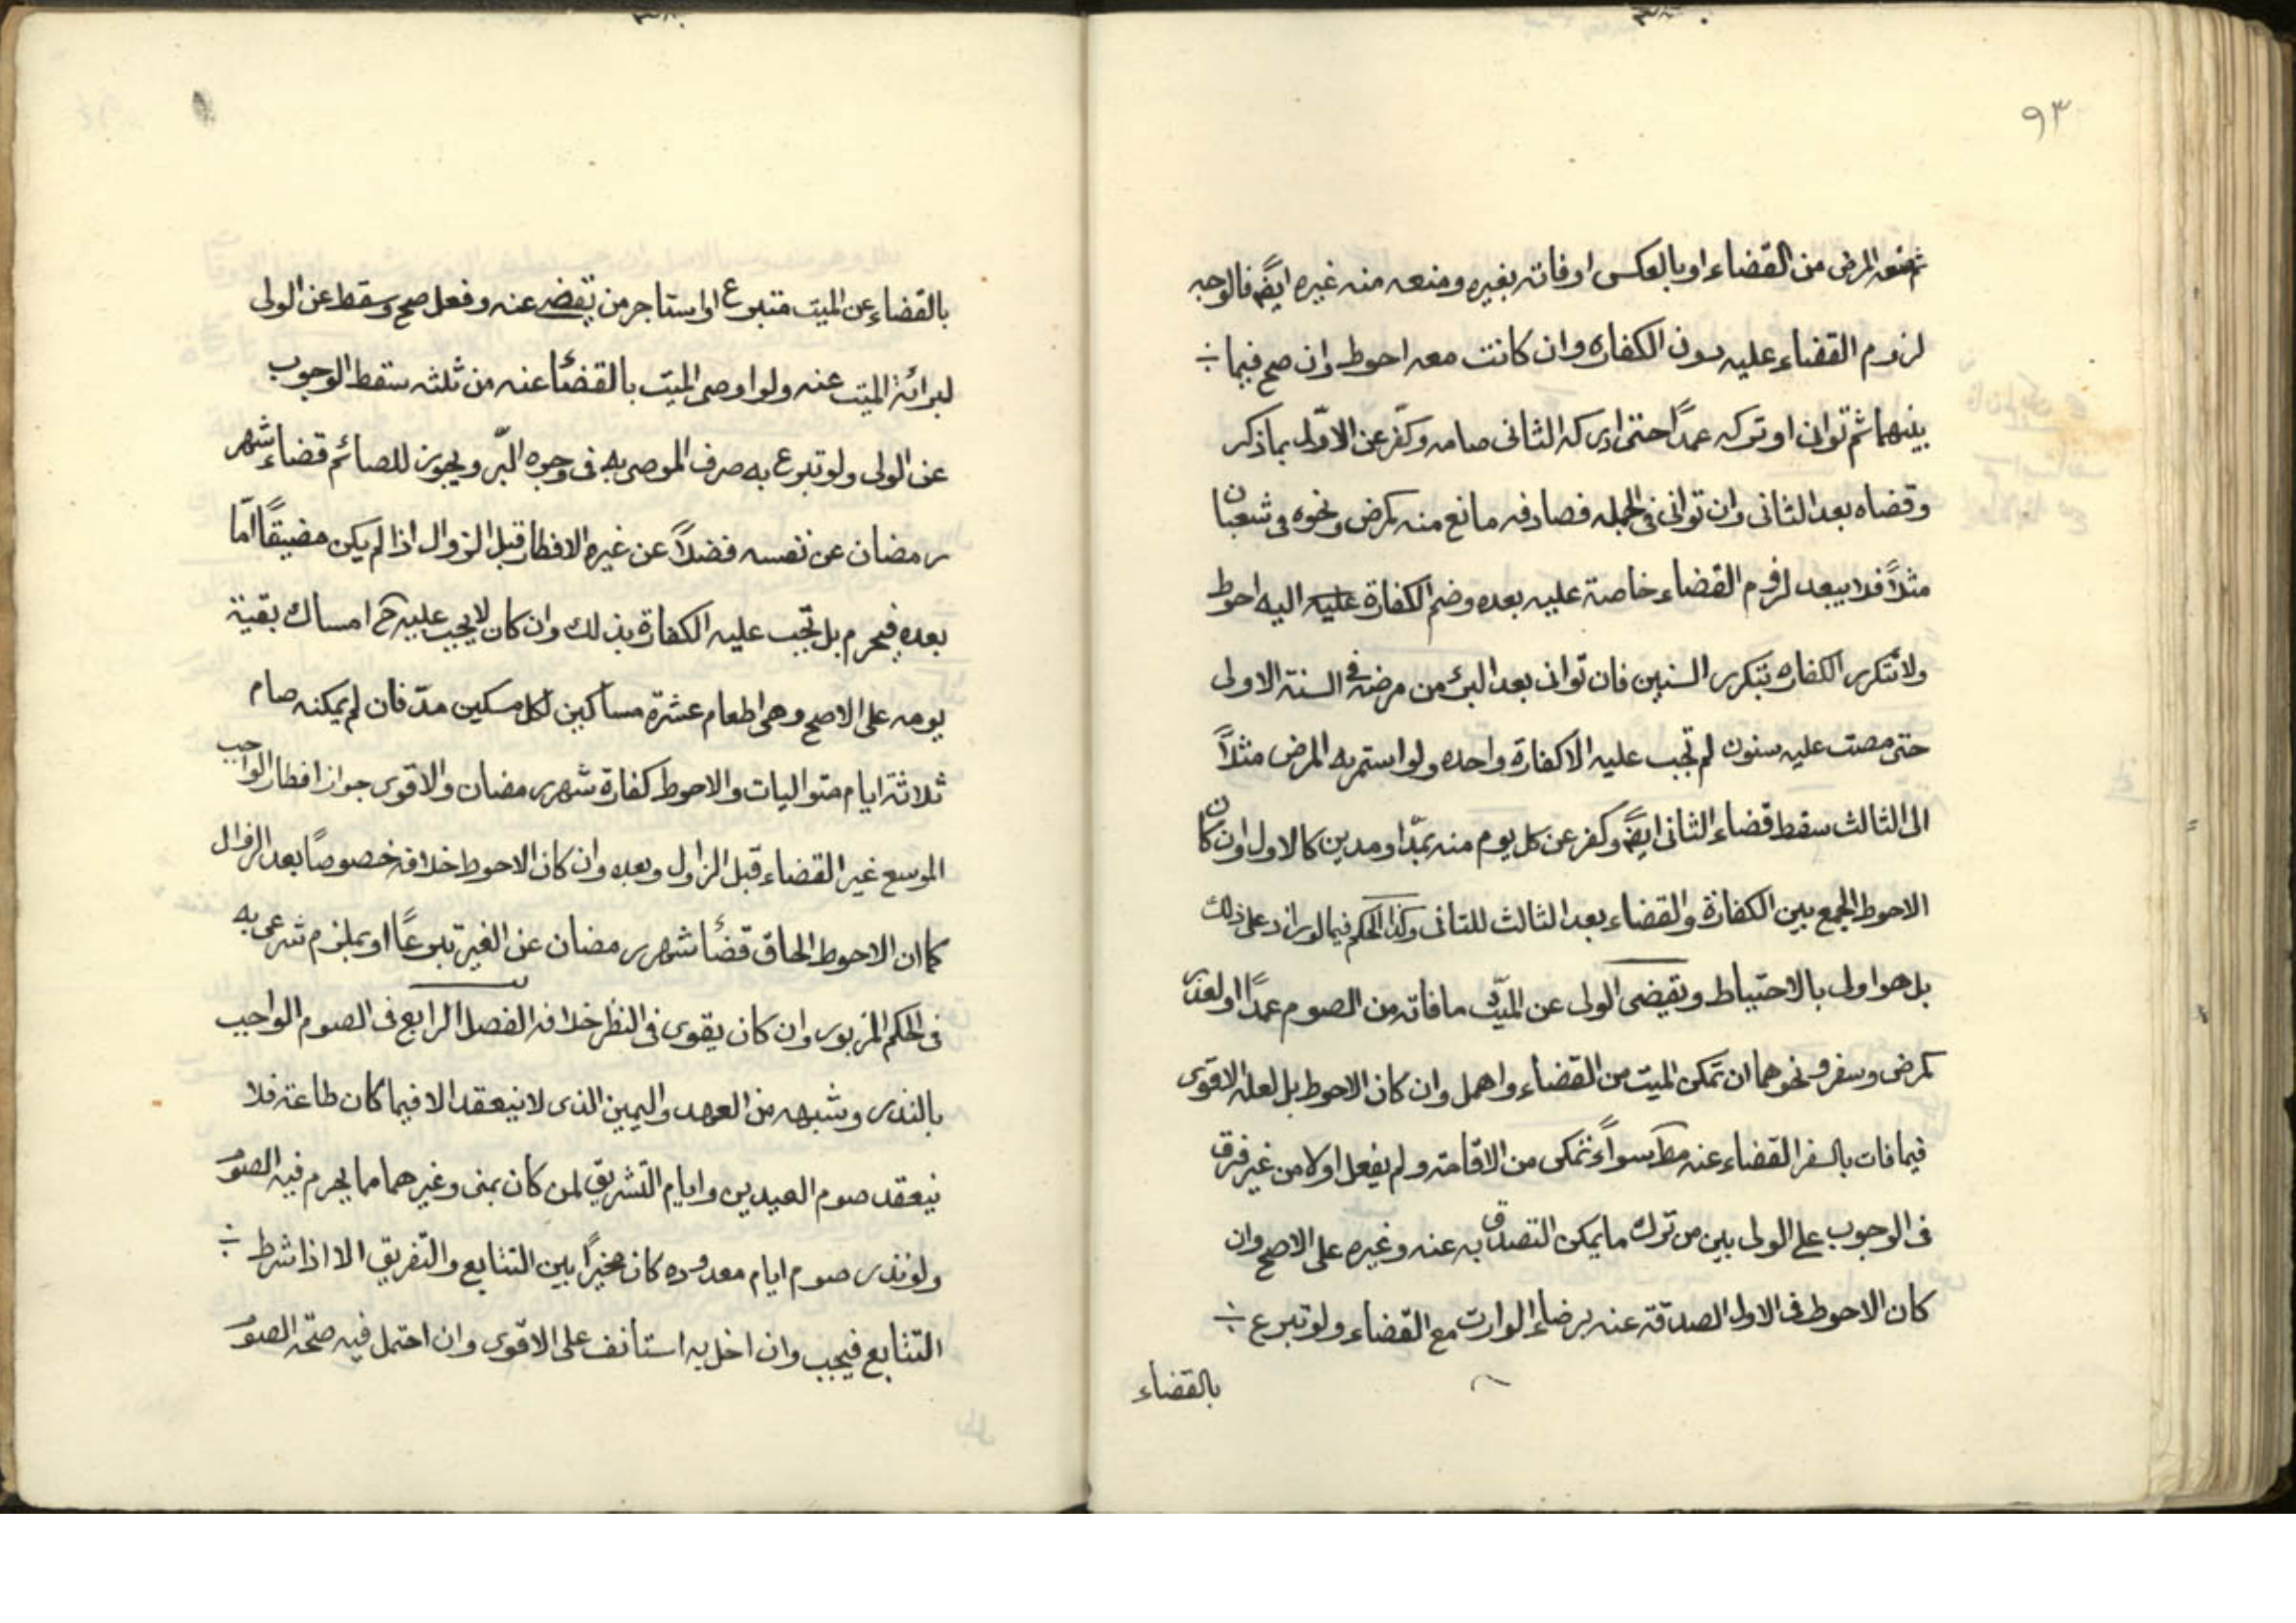 ٩٣
ثم منعه المرض من القضاء او بالعكس او فاته بغيره ومنعه منه غيره ايضً فالوجه
لزوم القضاء عليه دون الكفاره وان كانت معه احوط وان صح فيما
بينهما ثم توانى او تركه عمدًا حتى ادركه الثانى صامه وكفّر عن الاوّل بما ذكر
وقضاه بعد الثانى وان توانى فى الجمله فصادفه مانع منه كمرض ونحوه فى شعبان
مثلاً فلا يبعد لزوم القضاء خاصة عليه بعده وضم الكفارة عليه اليه احوط
ولا تتكرر الكفاره بتكرر السنين فان توانى بعد البرئ من مرضه فى السنة الاولى
حتى مضت عليه سنون لم تجب عليه الا كفارة واحده ولو استمر به المرض مثلاً
الى الثالث سقط قضاء الثانى ايضً وكفر عن كل يوم منه بمدّ او مدين كالاول وان كان
الاحوط الجمع بين الكفارة والقضاء بعد الثالث للثانى وكذا الحكم فيما لو زاد على ذلك
بل هو اولى بالاحتياط ويقضى الولى عن الميّت ما فاته من الصوم عمدًا او لعذر
كمرض وسفر ونحوهما ان تمكن الميت من القضاء واهمل وان كان الاحوط بل لعله الاقوى
فيما فات بالسفر القضاء عنه مط سواءً تمكن من الاقامة ولم يفعل اولا من غير فرق
فى الوجوب على الولى بين من ترك ما يمكن التصدق به عنه وغيره على الاصح وان
كان الاحوط فى الاول الصدقة عنه برضاء الوارث مع القضاء ولو تبرع
بالقضاء
بالقضاء عن الميت متبرع او استاجر من يقضه عنه وفعل صح وسقط عن الولى
لبرائة الميت عنه ولو اوصى الميت بالقضاء عنه من ثلثه سقط الوجوب
عن الولى ولو تبرع به صرف الموصى به فى وجوه البّر ويجوز للصائم قضاء شهر
رمضان عن نفسه فضلاً عن غيره الافطار قبل الزوال اذا لم يكن مضيقًا امّا
بعده فيحرم بل تجب عليه الكفارة بذلك وان كان لا يجب عليه ح امساك بقية
يومه على الاصح وهى اطعام عشرة مساكين لكل مسكين مدّ فان لم يمكنه صام
ثلاثة ايام متواليات والاحوط كفارة شهر رمضان والاقوى جواز افطار الواجب
الموسع غير القضاء قبل الزاول وبعده وان كان الاحوط خلافه خصوصًا بعد الزوال
كما ان الاحوط الحاق قضاء شهر رمضان عن الغير تبرعًا او بملزم شرعى به
فى الحكم المزبور وان كان يقوى فى النظر خلافه الفصل الرابع فى الصوم الواجب
بالنذر وشبهه من العهد واليمين الذى لا ينعقد الا فيما كان طاعة فلا
ينعقد صوم العيدين وايام التّشريق لمن كان بمنى وغيرهما مما يحرم فيه الصوم
ولو نذر صوم ايام معدوده كان مخيرًا بين التتابع والتّفريق الا اذا شرط
التتابع فيجب وان اخل به استانف على الاقوى وان احتمل فيه صحّة الصوم